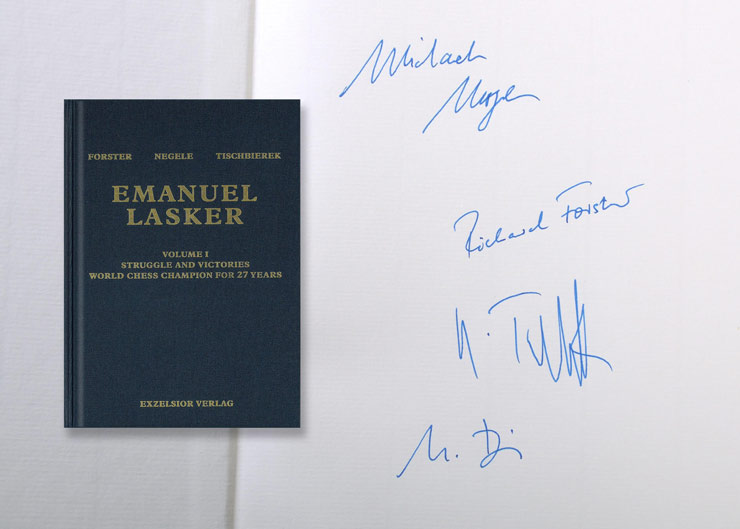 FORSTER NEGELE TISCHBIEREK
EMANUEL
LASKER
VOLUME I
STRUGGLE AND VICTORIES
WORLD CHESS CHAMPION FOR 27 YEARS
EXZELSIOR VERLAG
Michael
Richard Forster